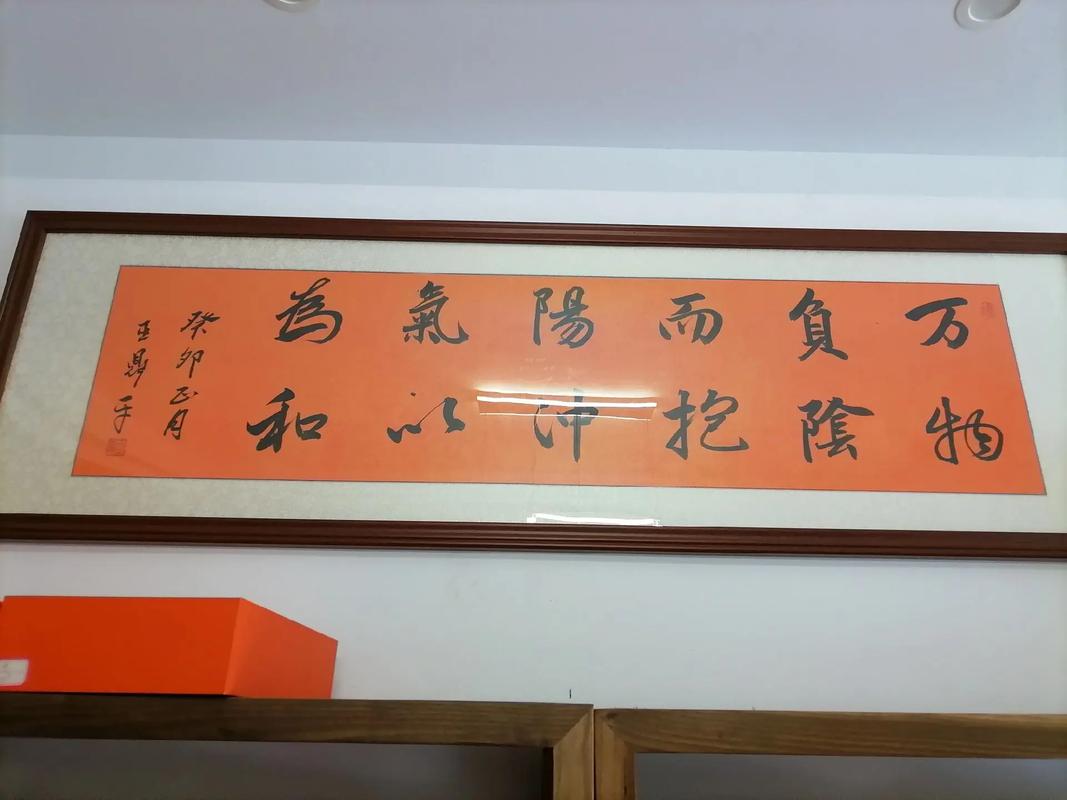 万物
負陰
而抱
陽沖
氣以
為和
癸卯正月
王鼎平